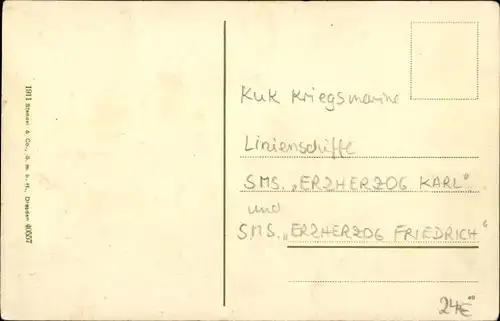 1911 Stengel & Co., G. m. b. H., Dresden 40557
KuK Kriegsmarine
Linienschiffe
SMS. „ERZHERZOG KARL"
und
SMS. „ERZHERZOG FRIEDRICH"